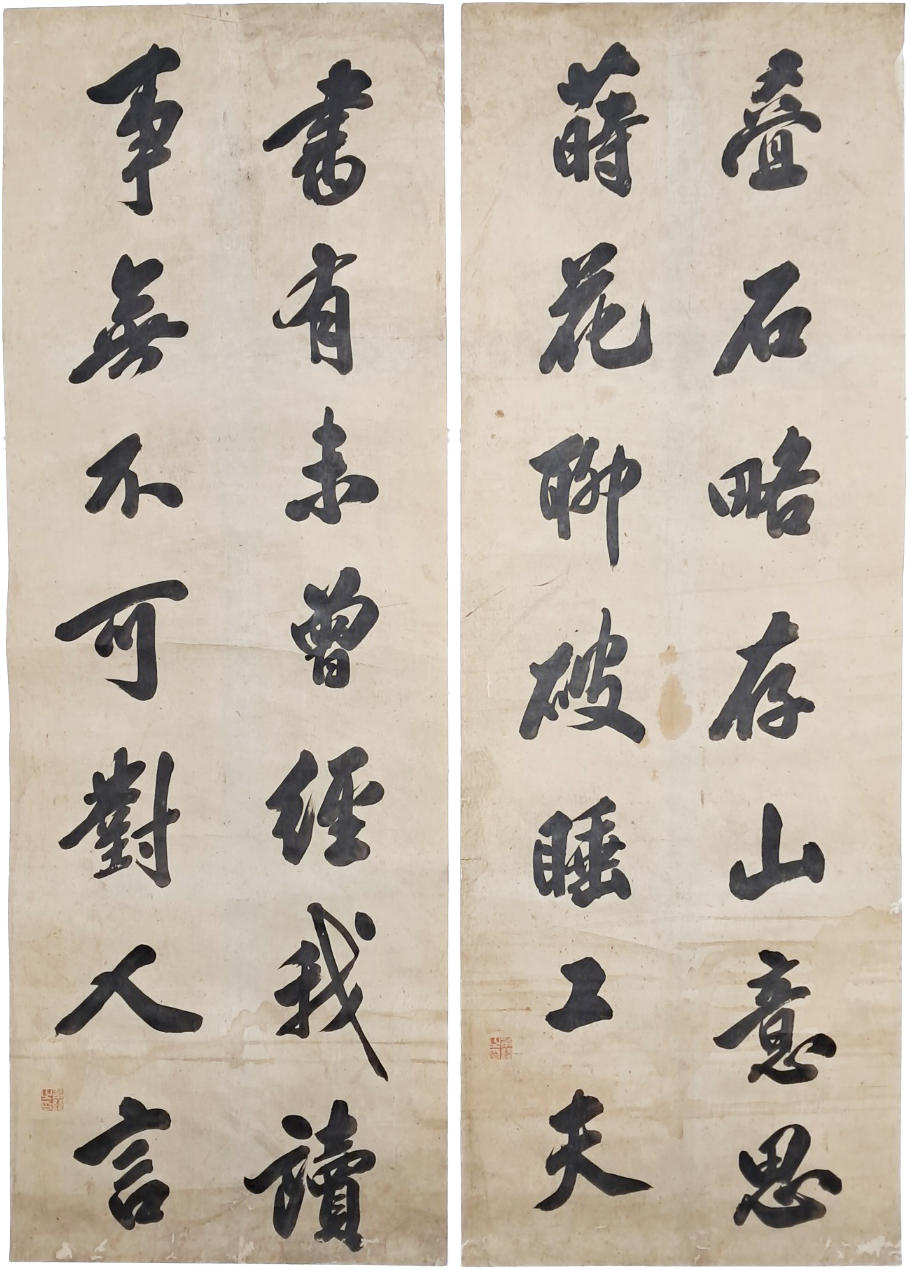 叠石略存山意思
蒔花聊破睡工夫
書有未曾經我讀
事無不可對人言